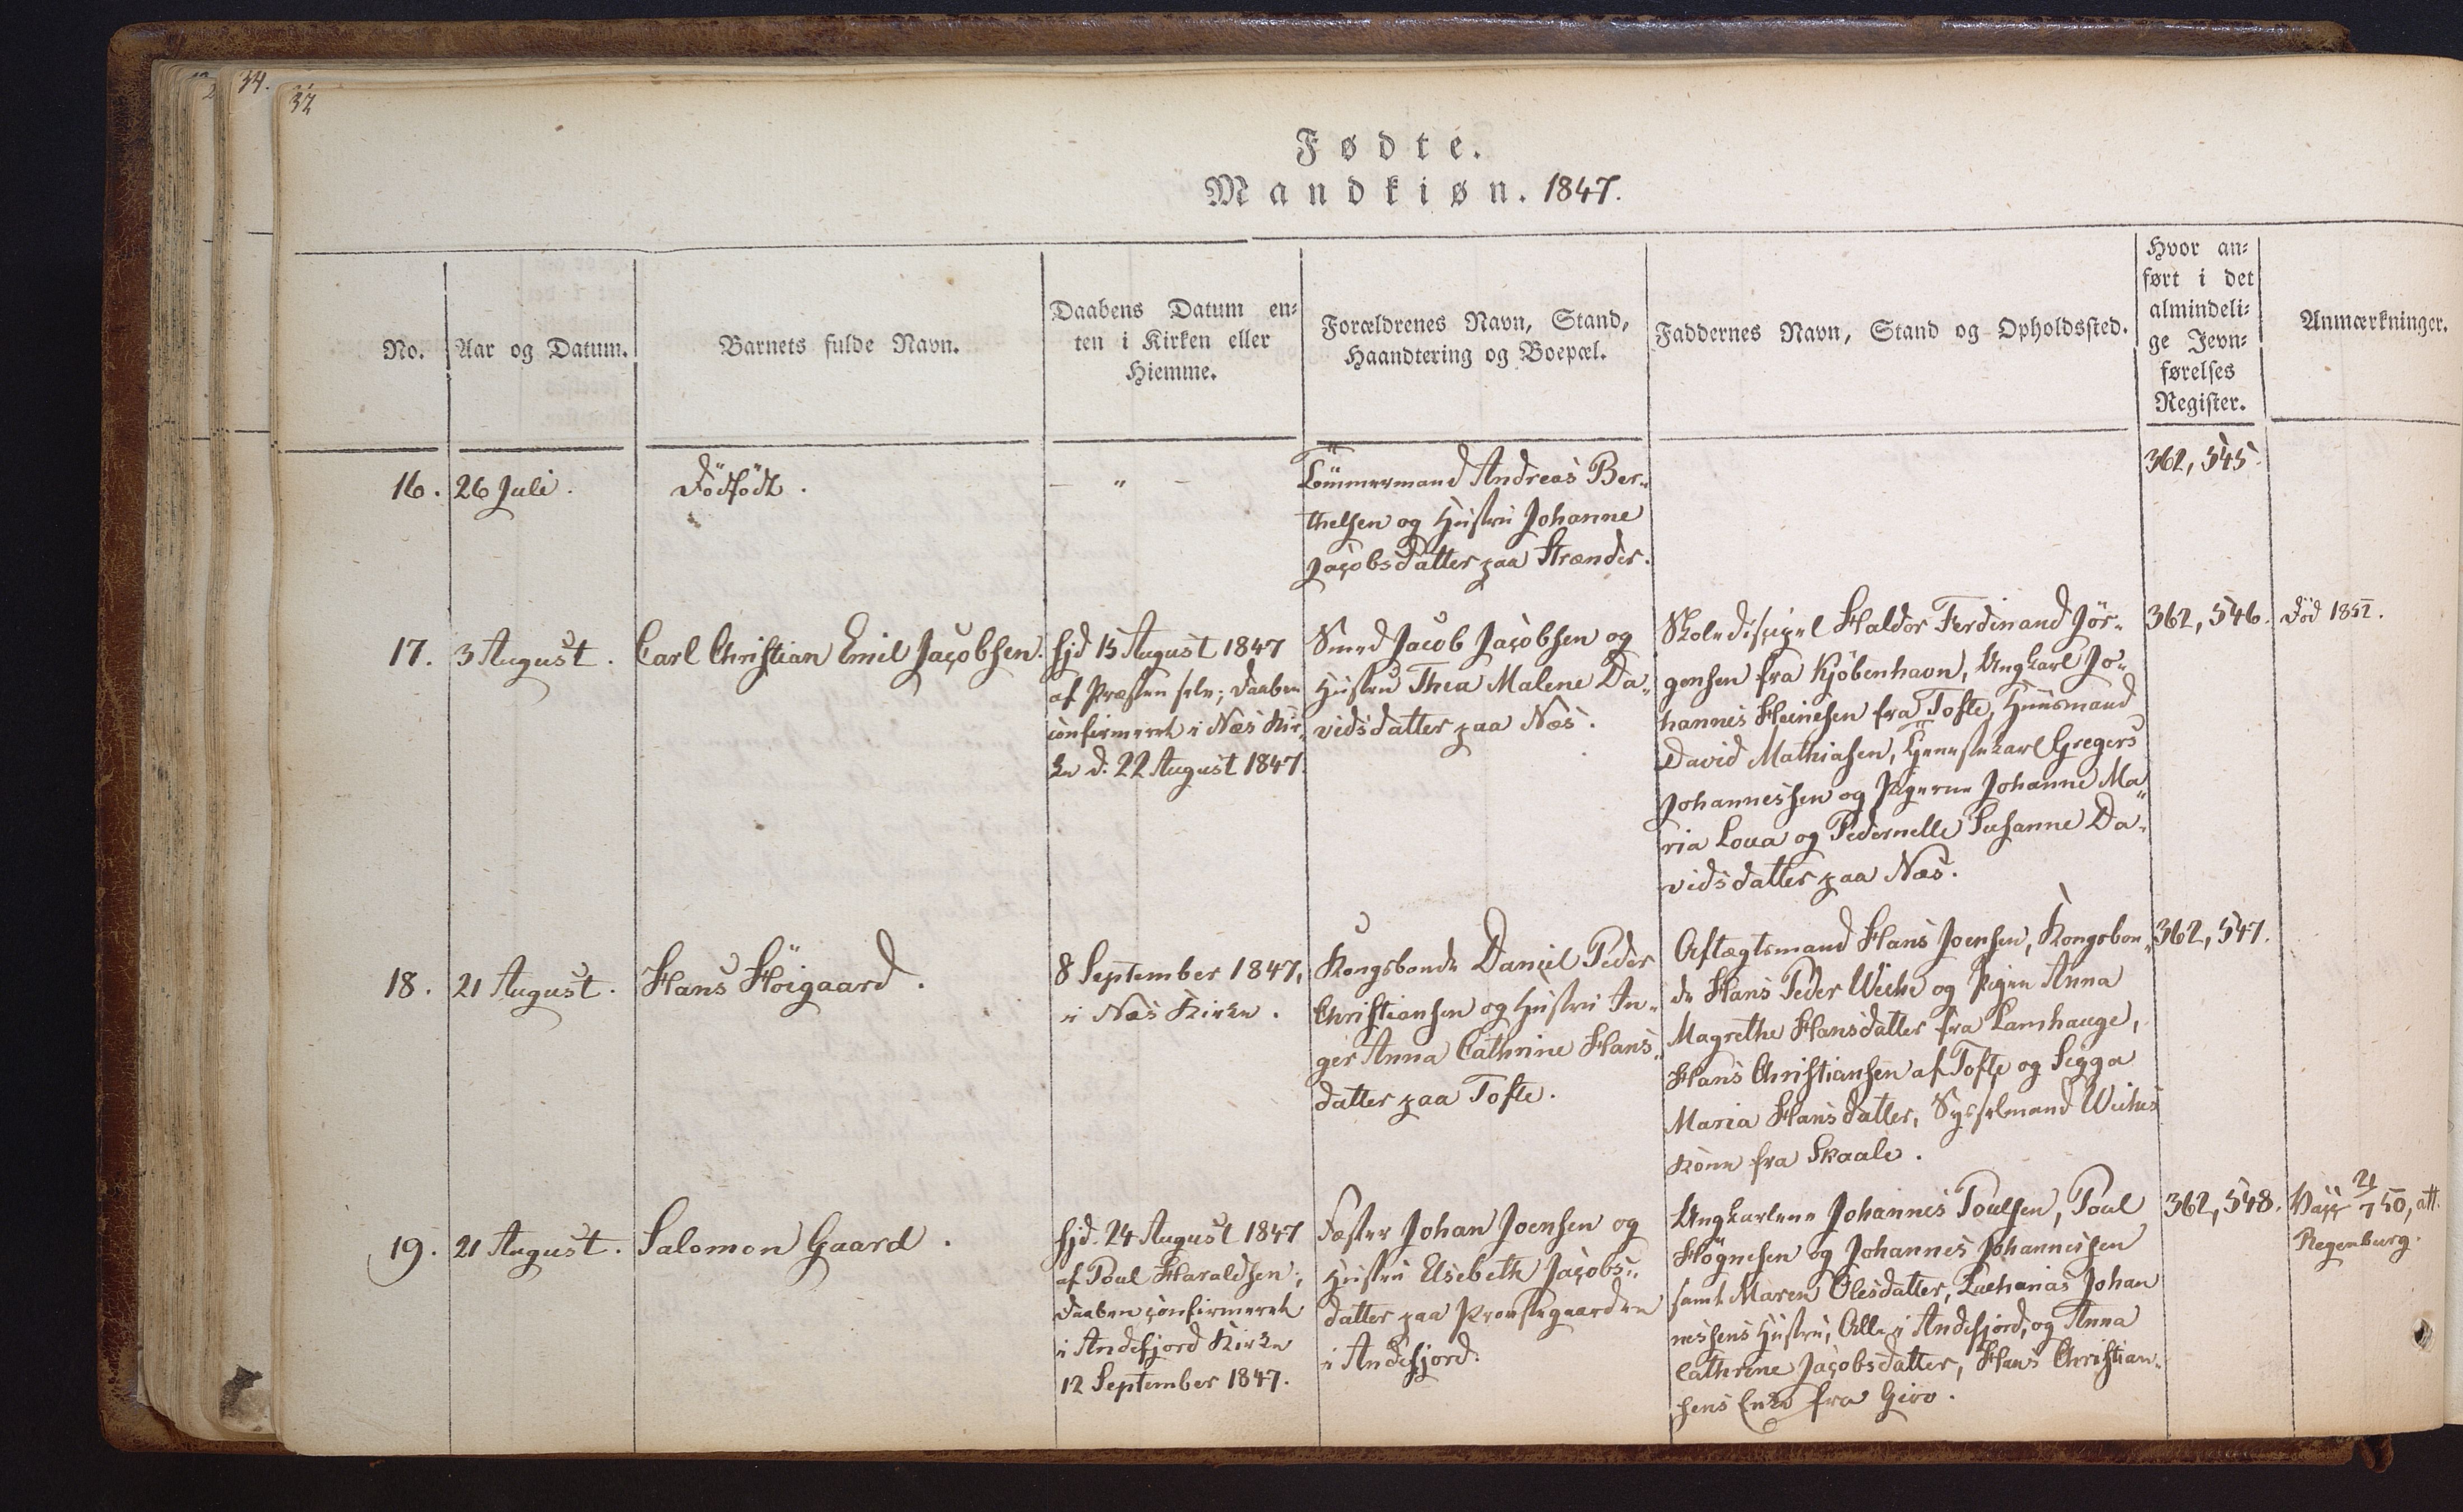 34.
32
Fødte.
Mandkiøn. 1847.
No.
Aar og Datum.
Barnets fulde Navn.
Daabens Datum en-
ten i Kirken eller
Hiemme.
Forældrenes Navn, Stand,
Haandtering og Boepæl.
Faddernes Navn, Stand og Opholdssted.
Hvor an-
ført i det
almindeli-
ge Jevn-
førelses
Register.
Anmærkninger.
16.
26 Juli.
Dödfödt.
— " —
Tömmermand Andreas Ber-
thelsen og Hustru Johanne
Jacobsdatter paa Strænder.
362, 545.
17.
3 August.
Carl Christian Emil Jacobsen.
hjd 15 August 1847
af Præsten selv; Daaben
confirmeret i Næs Kir-
ke d. 22 August 1847.
Smed Jacob Jacobsen og
Hustru Thea Malene Da-
vidsdatter paa Næs.
Skolediscipel Haldor Ferdinand Jör-
gensen fra Kjöbenhavn, Ungkarl Jo-
hannes Heinesen fra Tofte, Huusmand
David Mathiasen, Tjenestekarl Gregers
Johannessen og Pigerne Johanne Ma-
ria Loua og Pedernelle Susanne Da-
vidsdatter paa Næs.
362, 546.
Död 1852.
18.
21 August.
Hans Höigaard.
8 September 1847,
i Næs Kirke.
Kongsbonde Daniel Peder
Christiansen og Hustru In-
ger Anna Cathrine Hans-
datter paa Tofte.
Aftægtsmand Hans Joensen, Kongsbon-
de Hans Peder Weihe og Pigen Anna
Magrethe Hansdatter fra Lamhauge,
Hans Christiansen af Tofte og Sigga
Maria Hansdatter, Sysselmand Weihes
Kone fra Skaale.
362, 547.
19.
21 August.
Salomon Gaard.
hjd. 24 August 1847
af Poul Haraldsen;
Daaben confirmeret
i Andefjord Kirke
12 September 1847.
Fæster Johan Joensen og
Hustru Elsebeth Jacobs-
datter paa Præstegaarden
i Andefjord.
Ungkarlene Johannes Poulsen, Poul
Högnesen og Johannes Johannessen
samt Maren Olesdatter, Zacharias Johan
nessens Hustru, Alle i Andefjord, og Anna
Cathrine Jacobsdatter, Hans Christian-
sens Enke fra Giov.
362, 548.
Vacc 21/7 50, att.
Regenburg.